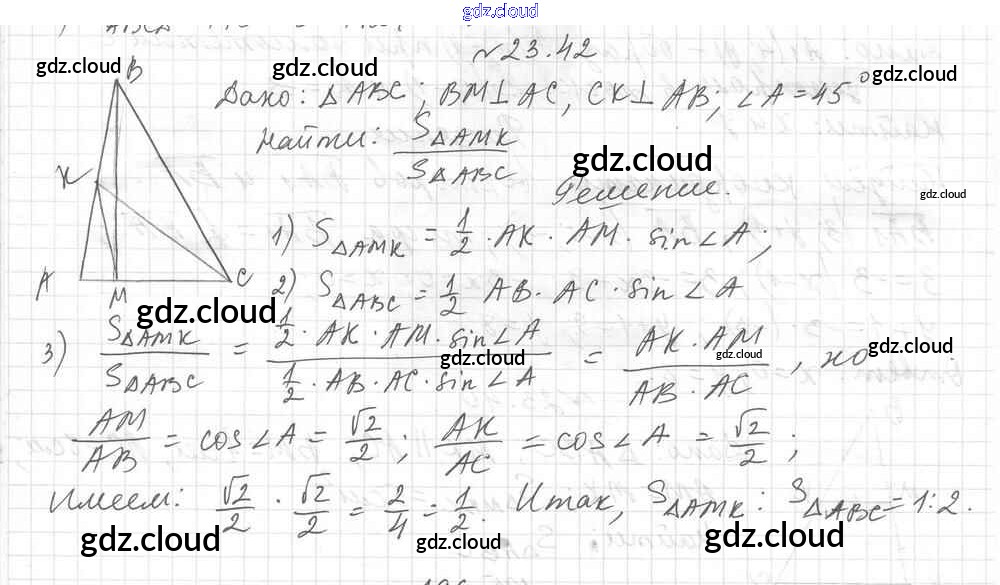 gdz.cloud
№23.42
gdz.cloud B gdz.cloud gdz.cloud
Дано: ΔABC; BM⊥AC, CK⊥AB; ∠A=45°
Найти: S_ΔAMK / S_ΔABC
gdz.cloud
gdz.cloud
K Решение.
1) S_ΔAMK = 1/2 · AK · AM · sin∠A;
A M C
2) S_ΔABC = 1/2 AB · AC · sin∠A
gdz.cloud
3) S_ΔAMK / S_ΔABC = (1/2 · AK · AM · sin∠A) / (1/2 · AB · AC · sin∠A) = (AK · AM) / (AB · AC), но
gdz.cloud gdz.cloud gdz.cloud
AM/AB = cos∠A = √2/2; AK/AC = cos∠A = √2/2;
Имеем: √2/2 · √2/2 = 2/4 = 1/2. Итак, S_ΔAMK : S_ΔABC = 1:2.
gdz.cloud gdz.cloud gdz.cloud